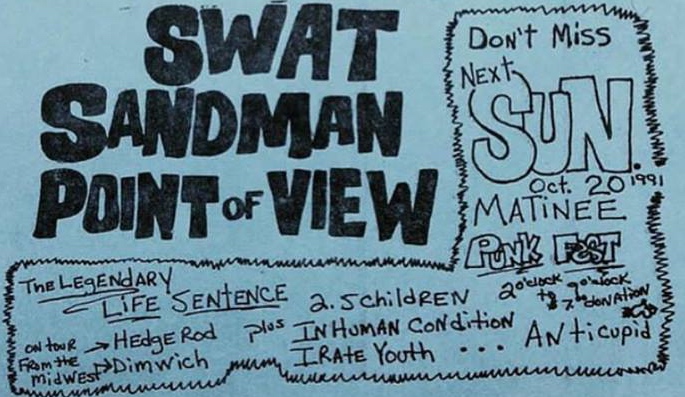 SWAT
SANDMAN
POINT OF VIEW
DON'T MISS
NEXT
SUN.
Oct. 20 1991
MATINEE
PUNK FEST
2 o'clock to 9 o'clock
$7.00 donation
The LEGENDARY
LIFE SENTENCE
ON TOUR
FROM the
MIDWEST
HedgeRod
Dimwich
plus
2.5 childREN
INHUMAN CONdition
IRAte Youth ...
ANticupid